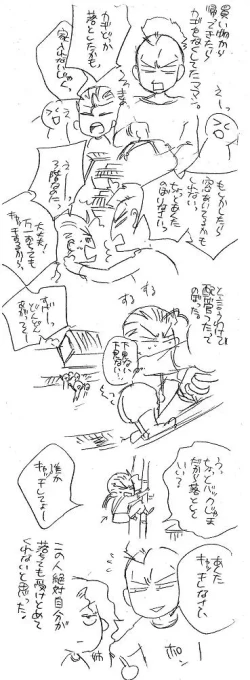 買い物から
帰ってきたら
カギをなくしてたママン。
カギどっか
落としたかも。
家入れないじゃん
えーっ
もしかしたら
窓あいてるかも
しれない。
ちょっとあんた
のぼりなさいっ
えーっ
2階なのにっ
大丈夫、
万一落ちても
キャッチするから。
という訳で
配管つたって
のぼった。
すす
下見ちゃ
だめだめ
うっ、
ちょっとバッグじゃま
だから落として
いい?
誰か
キャッチしてよー
あんた
キャッチしなさい。
ポーン
この人絶対自分が
落ちても受けとめて
くれないと思った。
姉